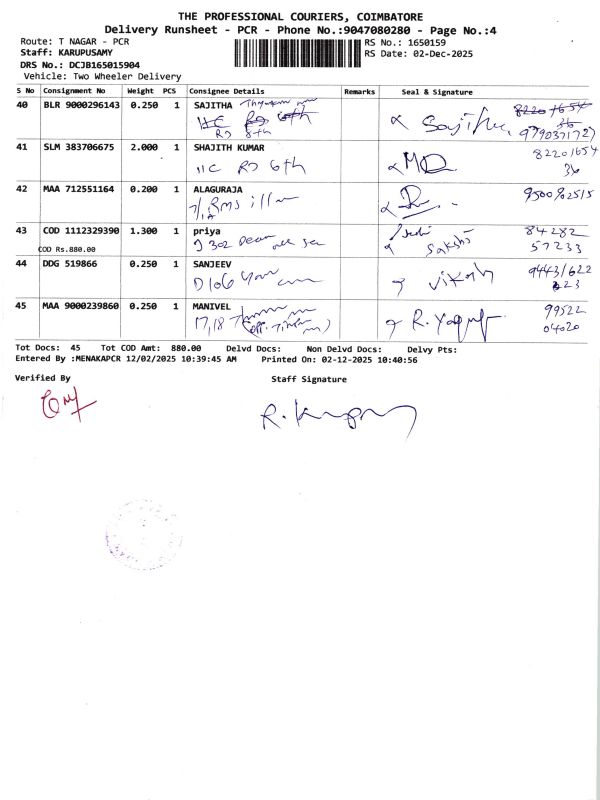 THE PROFESSIONAL COURIERS, COIMBATORE
Delivery Runsheet - PCR - Phone No.:9047080280 - Page No.:4
Route: T NAGAR - PCR
Staff: KARUPUSAMY
DRS No.: DCJB165015904
Vehicle: Two Wheeler Delivery
RS No.: 1650159
RS Date: 02-Dec-2025
S No Consignment No Weight PCS Consignee Details Remarks Seal & Signature
40 BLR 9000296143 0.250 1 SAJITHA
9790371727
41 SLM 383706675 2.000 1 SHAJITH KUMAR
11C RJ 6th 82201654
36
42 MAA 712551164 0.200 1 ALAGURAJA
9500502515
43 COD 1112329390 1.300 1 priya
COD Rs.880.00
J 302 sakshi 84282
57233
44 DDG 519866 0.250 1 SANJEEV
D106 Vikash 94431622
223
45 MAA 9000239860 0.250 1 MANIVEL
17,18 R. 99522
04020
Tot Docs: 45 Tot COD Amt: 880.00 Delvd Docs: Non Delvd Docs: Delvy Pts:
Entered By :MENAKAPCR 12/02/2025 10:39:45 AM Printed On: 02-12-2025 10:40:56
Verified By Staff Signature